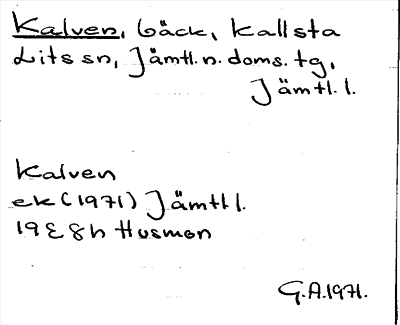 Kalven, bäck, Kallsta
Lits sn, Jämtl. n. doms. tg,
Jämtl. l.
Kalven
ek (1971) Jämtl l.
19E 8h Husmon
G.A. 1971.